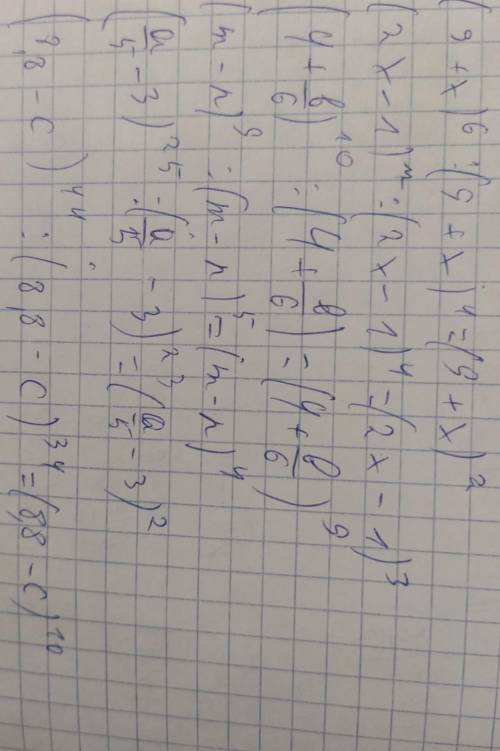 (9 + x)⁶ : (9 + x)⁴ = (9 + x)²
(2x - 1)⁷ : (2x - 1)⁴ = (2x - 1)³
(y + в/6)¹⁰ : (y + в/6) = (y + в/6)⁹
(m - n)⁹ : (m - n)⁵ = (m - n)⁴
(a/5 - 3)²⁵ : (a/5 - 3)²³ = (a/5 - 3)²
(8,8 - c)⁴⁴ : (8,8 - c)³⁴ = (8,8 - c)¹⁰